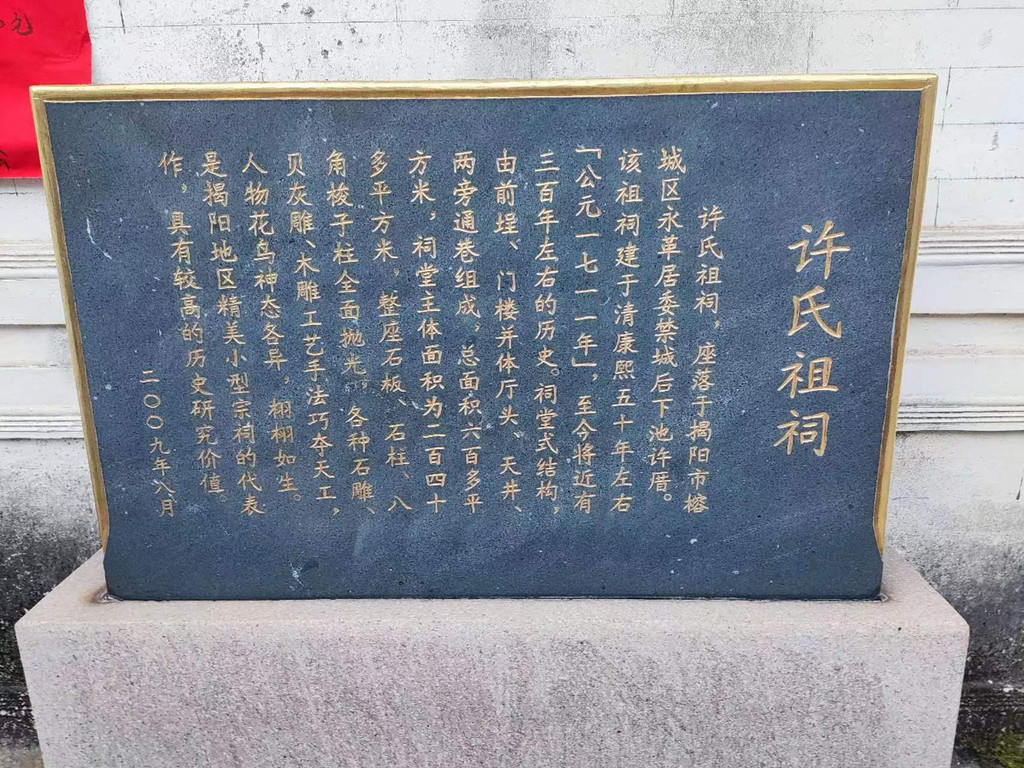 许氏祖祠
许氏祖祠，座落于揭阳市榕
城区永革居委禁城后下池许厝。
该祖祠建于清康熙五十年左右
「公元一七一一年」，至今将近有
三百年左右的历史。祠堂式结构，
由前埕、门楼并体厅头、天井、
两旁通巷组成，总面积六百多平
方米，祠堂主体面积为二百四十
多平方米，整座石板、石柱、八
角梭子柱全面抛光，各种石雕、
贝灰雕、木雕工艺手法巧夺天工，
人物花鸟神态各异，栩栩如生。
是揭阳地区精美小型宗祠的代表
作，具有较高的历史研究价值。
二〇〇九年八月